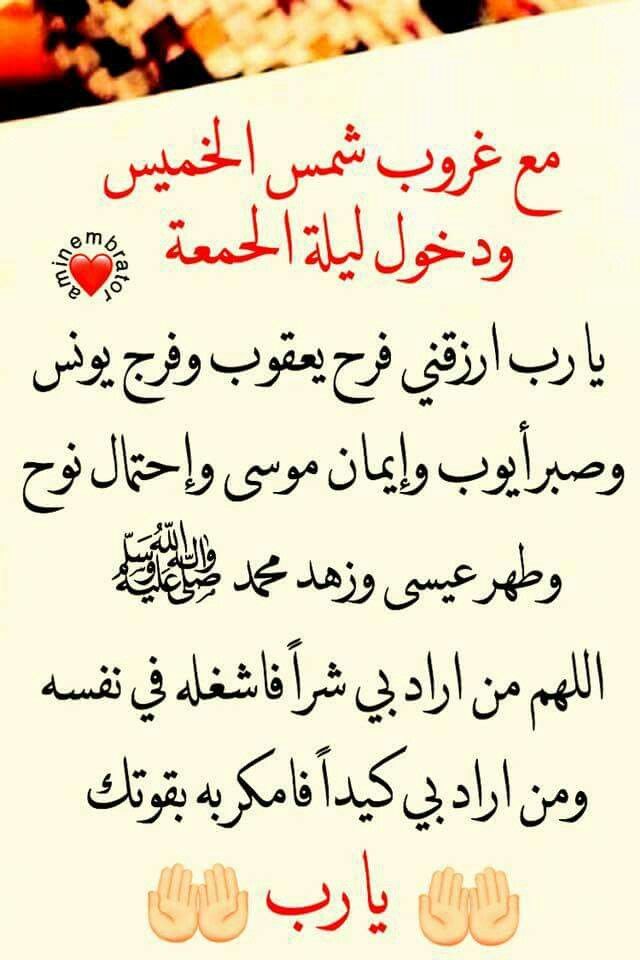 مع غروب شمس الخميس
ودخول ليلة الجمعة
aminembrator
يا رب ارزقني فرح يعقوب وفرج يونس
وصبر أيوب وإيمان موسى وإحتمال نوح
وطهر عيسى وزهد محمد ﷺ
اللهم من اراد بي شراً فاشغله في نفسه
ومن اراد بي كيداً فامكر به بقوتك
يا رب